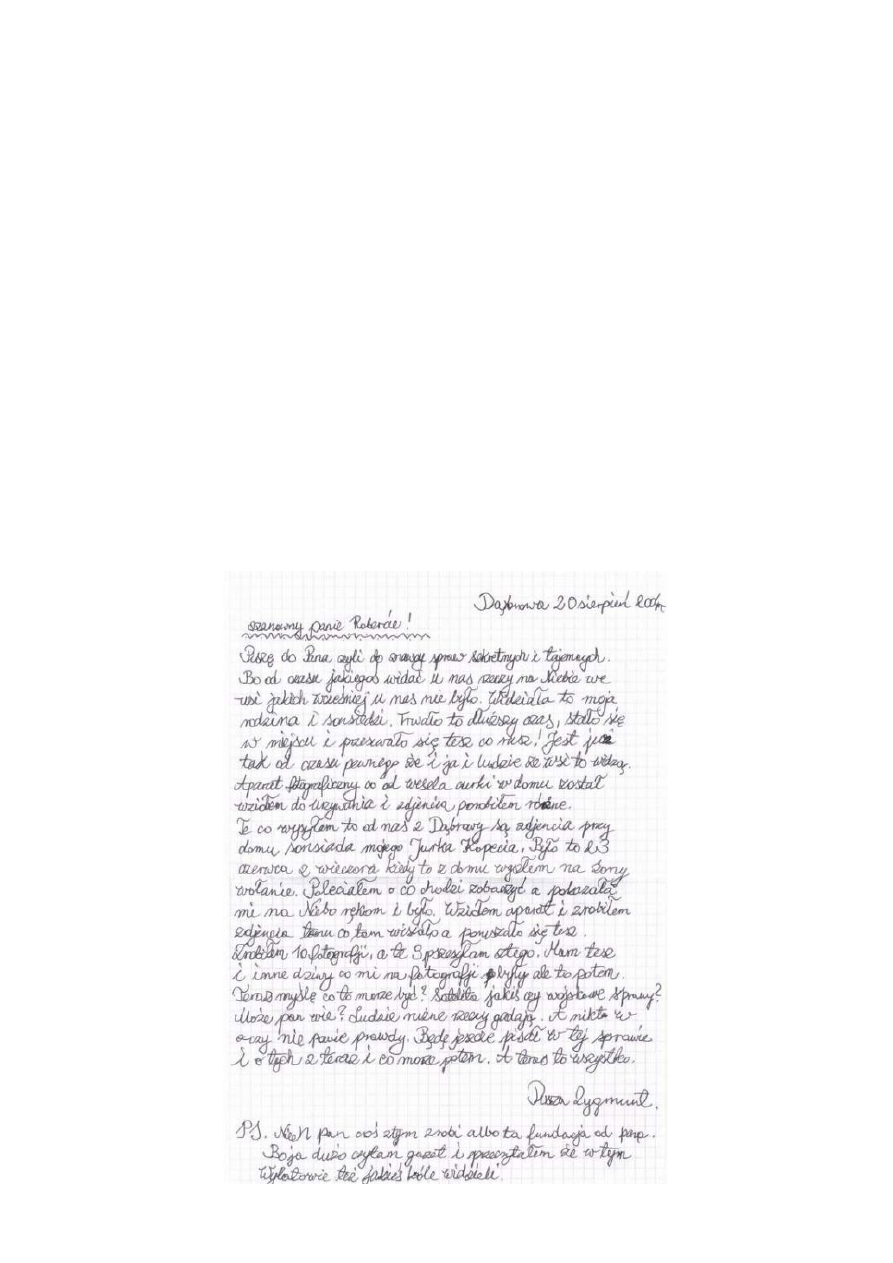 Dąbrowa 20 sierpień
szanowny panie Robercie!
Piszę do Pana czyli do znawcy spraw sekretnych i tajemnych.
Bo od czasu jakiegoś widać u nas rzeczy na Niebie we
wsi jakich wcześniej u nas nie było. Widziała to moja
rodzina i sonsiedzi. Trwało to dłuszszy czas, stało się
w miejscu i przesuwało się tesz co nisz! Jest jusz
tak od czasu pewnego że i ja i ludzie ze wsi to widzą.
Aparat fotograficzny co od wesela curki w domu został
wziołem do urzywania i zdjencia porobiłem rózne.
Te co wysyłam to od nas z Dąbrowy są zdjencia przy
domu sonsiada mojego Jurka Kopecia. Było to 23
czerwca z wieczora kiedy to z domu wyszłem na żony
wołanie. Poleciałem o co chodzi zobaczyć a pokazała
mi na Niebo rękom i było. Wziołem aparat i zrobiłem
zdjencia temu co tam wisiało a poruszało się tesz.
Zrobiłem 10 fotografji, a te 3 przesyłam sztego. Mam tesz
i inne dziwy co mi na fotografji wyszły ale to potem.
Teraz myślę co to morze być? Satelita jakiś czy wojskowe sprawy?
Może pan wie? Ludzie rużne rzeczy gadają. A nikt w
oczy nie powie prawdy. Będę jeszcze pisał w tej sprawie
i o tych z teraz i co morze potem. A teraz to wszystko.
Zygmunt.
PS. Niech pan coś z tym zrobi albo ta fundacja od pana.
Bo ja dużo czytam gazet i przeczytałem że w tym
Wylatowie też jakieś kule widzieli.